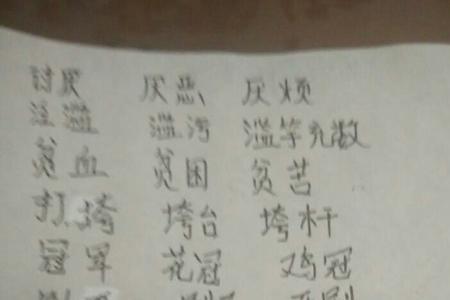 讨厌 厌恶 厌烦
泛滥 滥污 滥竽充数
贫血 贫困 贫苦
打垮 垮台 垮杆
冠军 花冠 鸡冠